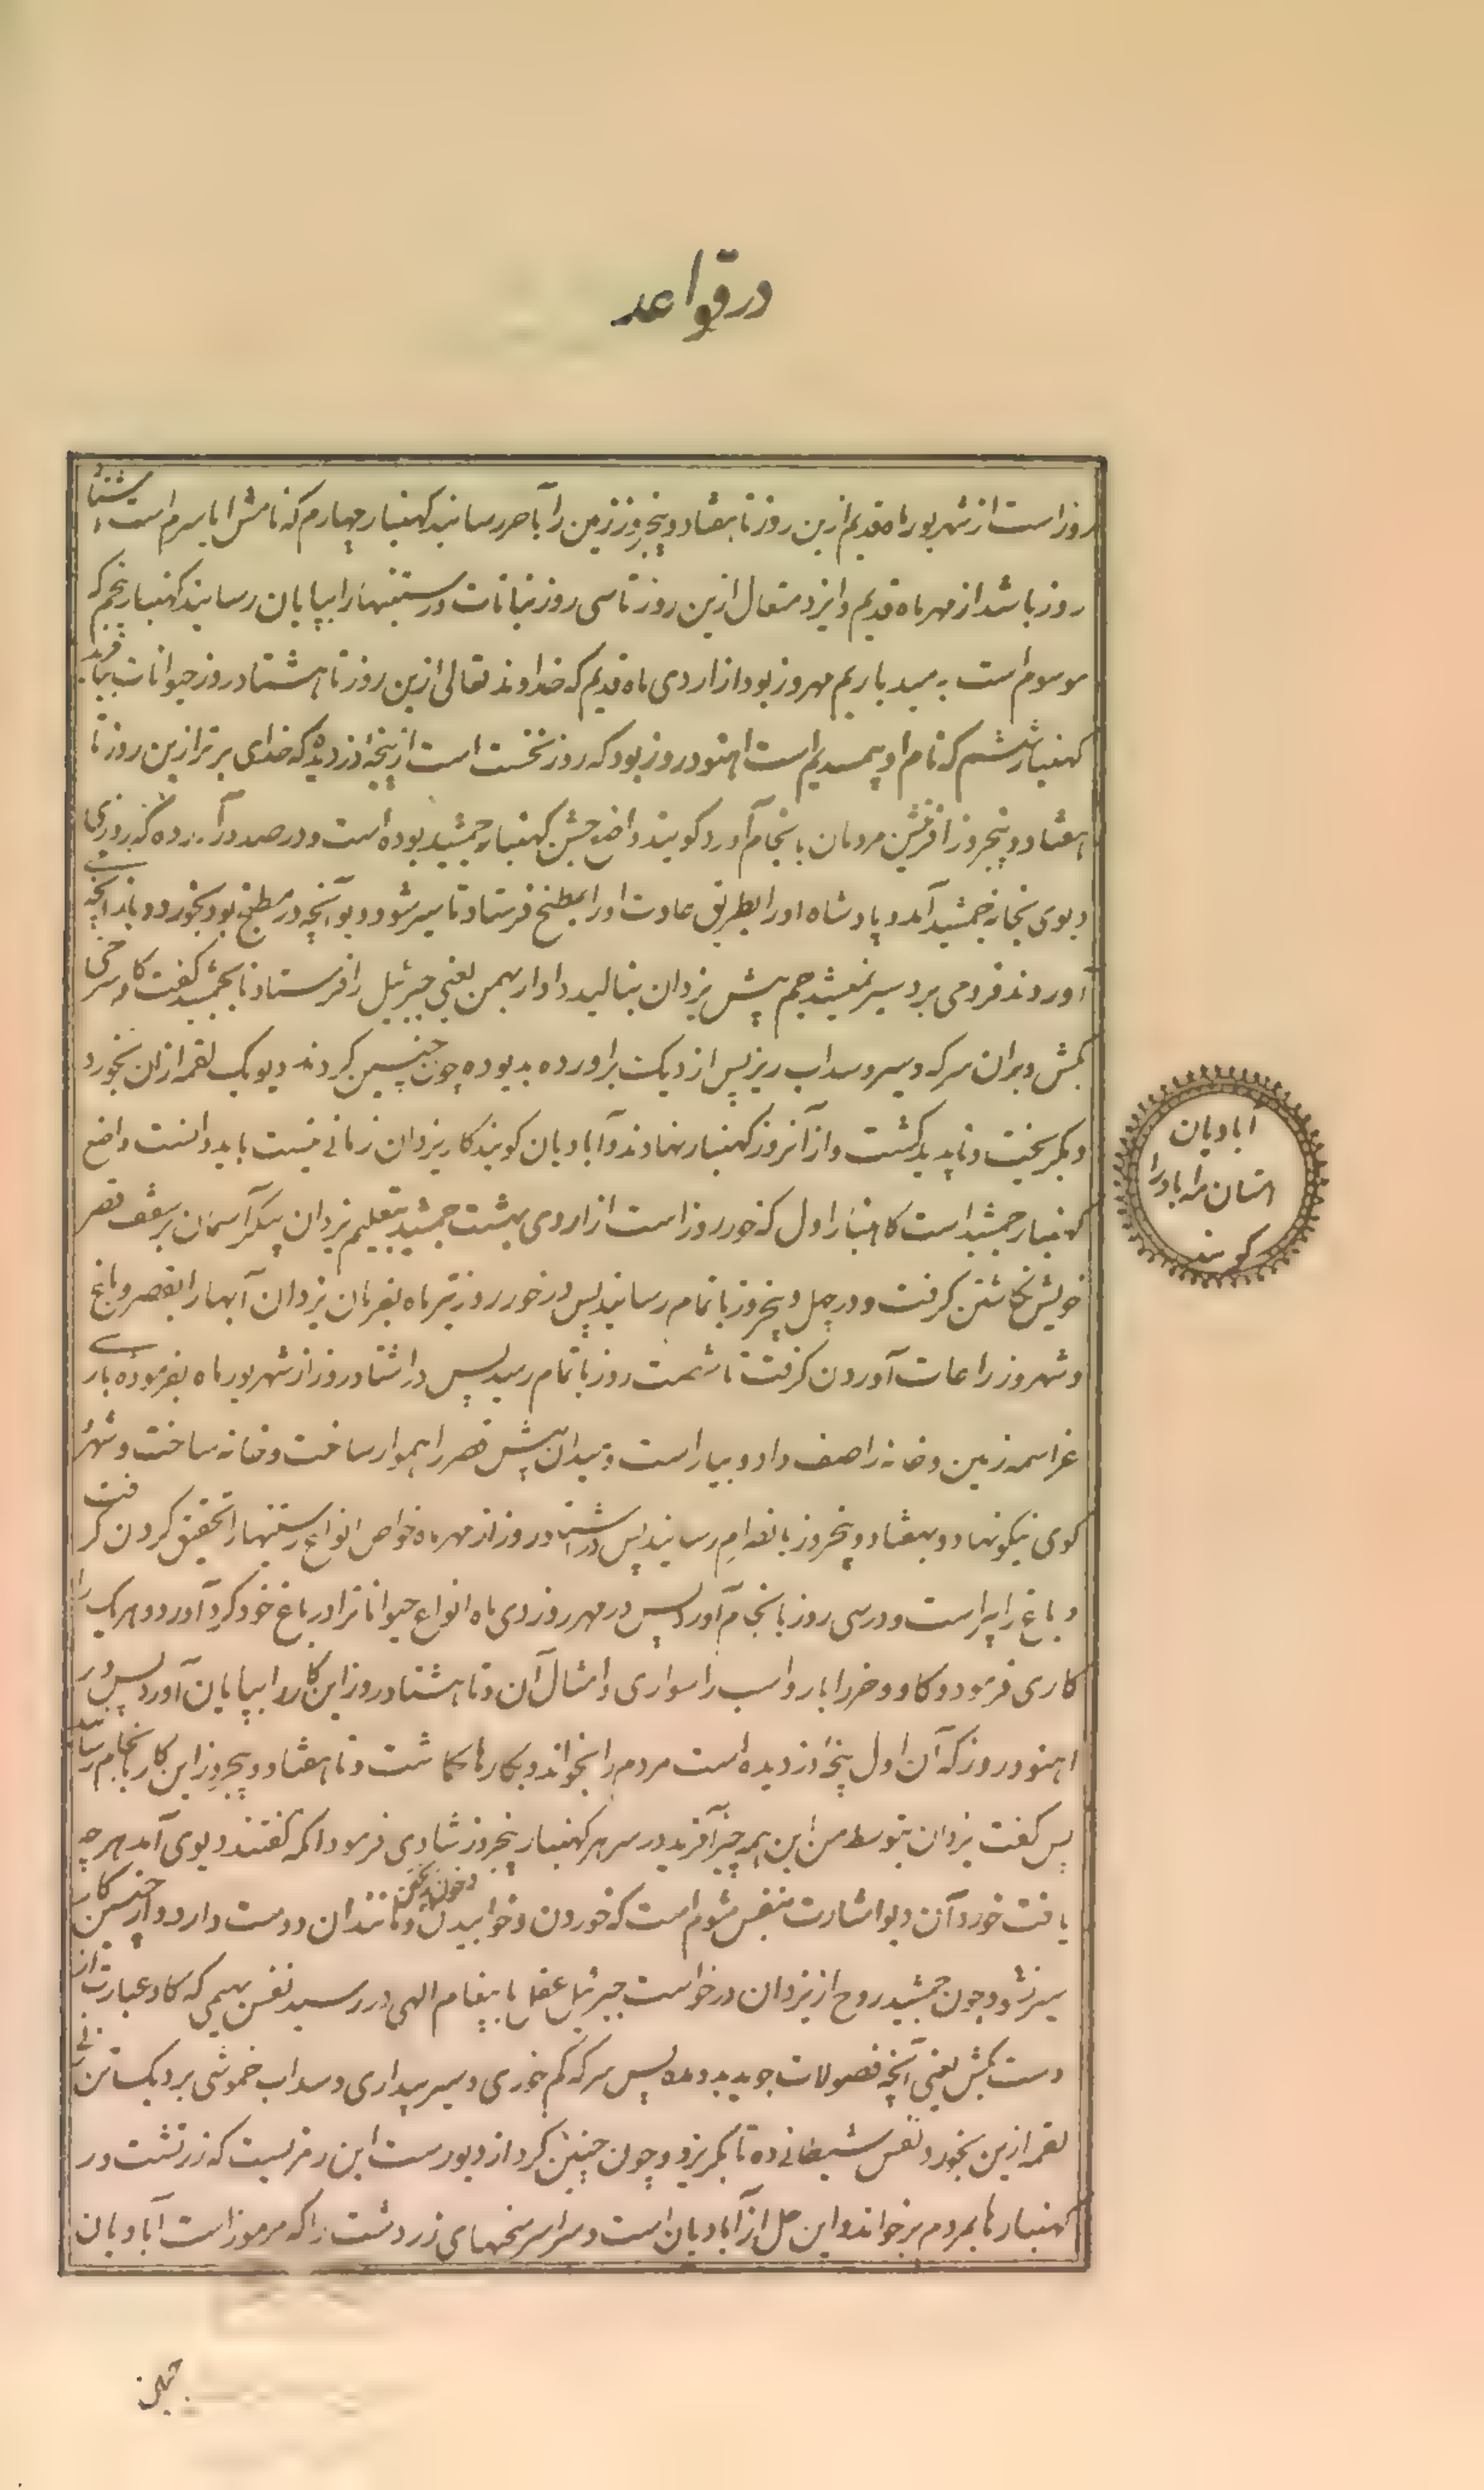 در قواعد
روز است از شهریور ماه قدیم ازین روز تا هفتاد و پنجروز زمین را بآخر رسانید کهنبار چهارم که نامش ایاسرم است اشتاد
روز باشد از مهر ماه قدیم و ایزد متعال ازین روز تا سی روز نباتات و رستنیها را بپایان رسانید کهنبار پنجم که
موسوم است به میدیاریم مهر روز بود از اردی ماه قدیم که خداوند تعالی ازین روز تا هشتاد روز حیوانات بیافرید
کهنبار ششم که نام او همسدیم است اهنود روز بود که روز نخست است از پنجه دزدیده که خدای برتر ازین روز تا
هفتاد و پنجروز آفرینش مردمان بانجام آورد کویند واضع جشن کهنبار جمشید بوده است و در صد در آورده که روزی
دیوی بخانه جمشید آمد و پادشاه او را بطریق عادت او را بمطبخ فرستاد تا سیر شود دیو آنچه در مطبخ بود بخورد و باز آنچه
آوردند فرو می برد سیر نمیشد جم پیش یزدان بنالید دادار بهمن یعنی جبرئیل را فرستاد تا بجمشید گفت کاو سرخی
بکش و بران سرکه و سیر و سداب ریز پس از دیک برآورده بدیو ده چون چنین کردند دیو یک لقمه از ان بخورد
و بکریخت و ناپدید کشت و از آنروز کهنبار نهادند و آبادیان کویند کار یزدان زمانی نیست باید دانست واضع
کهنبار جمشید است کاهنبار اول که خور روز است از اردی بهشت جمشید بتعلیم یزدان پیکر آسمان بر سقف قصر
خویش نگاشتن کرفت و در چهل و پنجروز باتمام رسانید پس در خور روز تیر ماه بفرمان یزدان آبها را بقصر و باغ
و شهر و زراعات آوردن کرفت تا شصت روز باتمام رسید پس در اشتاد روز از شهریور ماه بفرموده باری
عز اسمه زمین و خانه را صف داد و بیاراست و میدان پیش قصر را هموار ساخت و خانه ساخت و شهر
کوی نیکو نهاد و بهفتاد و پنجروز بانصرام رسانید پس در اشتاد روز از مهر ماه خواص انواع رستنیها را تحقیق کردن کرفت
و باغ را پیراست و در سی روز بانجام آورد پس در مهر روز دی ماه انواع حیوانات را در باغ خود کرد آورد و هر یک را
کاری فرمود و کاو و خر را بار و اسب را سواری و امثال آن و تا هشتاد روز این کار را بپایان آورد پس در
اهنود روز که آن اول پنجه دزدیده است مردم را بخواند و بکارها کماشت و تا هفتاد و پنجروز این کار بانجام رسانید
پس کفت یزدان بتوسط من این همه چیز آفرید در سر هر کهنبار پنجروز شادی فرمود آنکه کفتند دیوی آمد هر چه
یافت خورد آن دیو اشارت بنفس شوم است که خوردن و خوابیدن و خون ریختن و مانند ان دوست دارد و از چنین کار
سیر نشود و چون جمشید روح از یزدان درخواست جبرئیل عقل با پیغام الهی در رسید نفس بهیمی که کاو عبارت از
دست بکش یعنی آنچه فضولات جوید بدو مده پس سرکه کم خوری و سیر بیداری و سداب خموشی بر دیک تن
لقمه ازین بخورد نفس شیطانی ده تا بکریزد و چون چنین کرد از دیو رست این رمزیست که زرتشت در
کهنبارها بمردم برخواند و این حل از آبادیان است و سراسر سخنهای زردشت را که مرموز است آبادیان
آبادیان
امتان مه اباد را
کویند